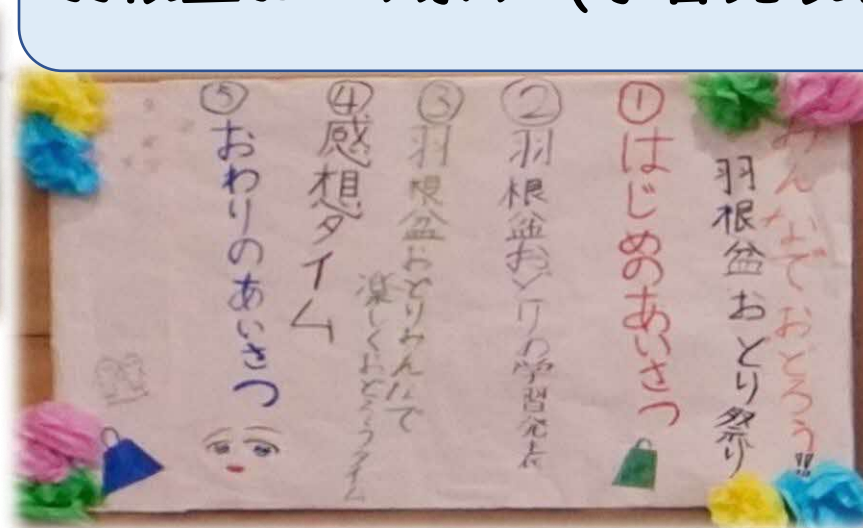 みんなでおどろう!!
羽根盆おどり祭り
①はじめのあいさつ
②羽根盆おどりの学習発表
③羽根盆おどりみんなで
楽しくおどろうタイム
④感想タイム
⑤おわりのあいさつ